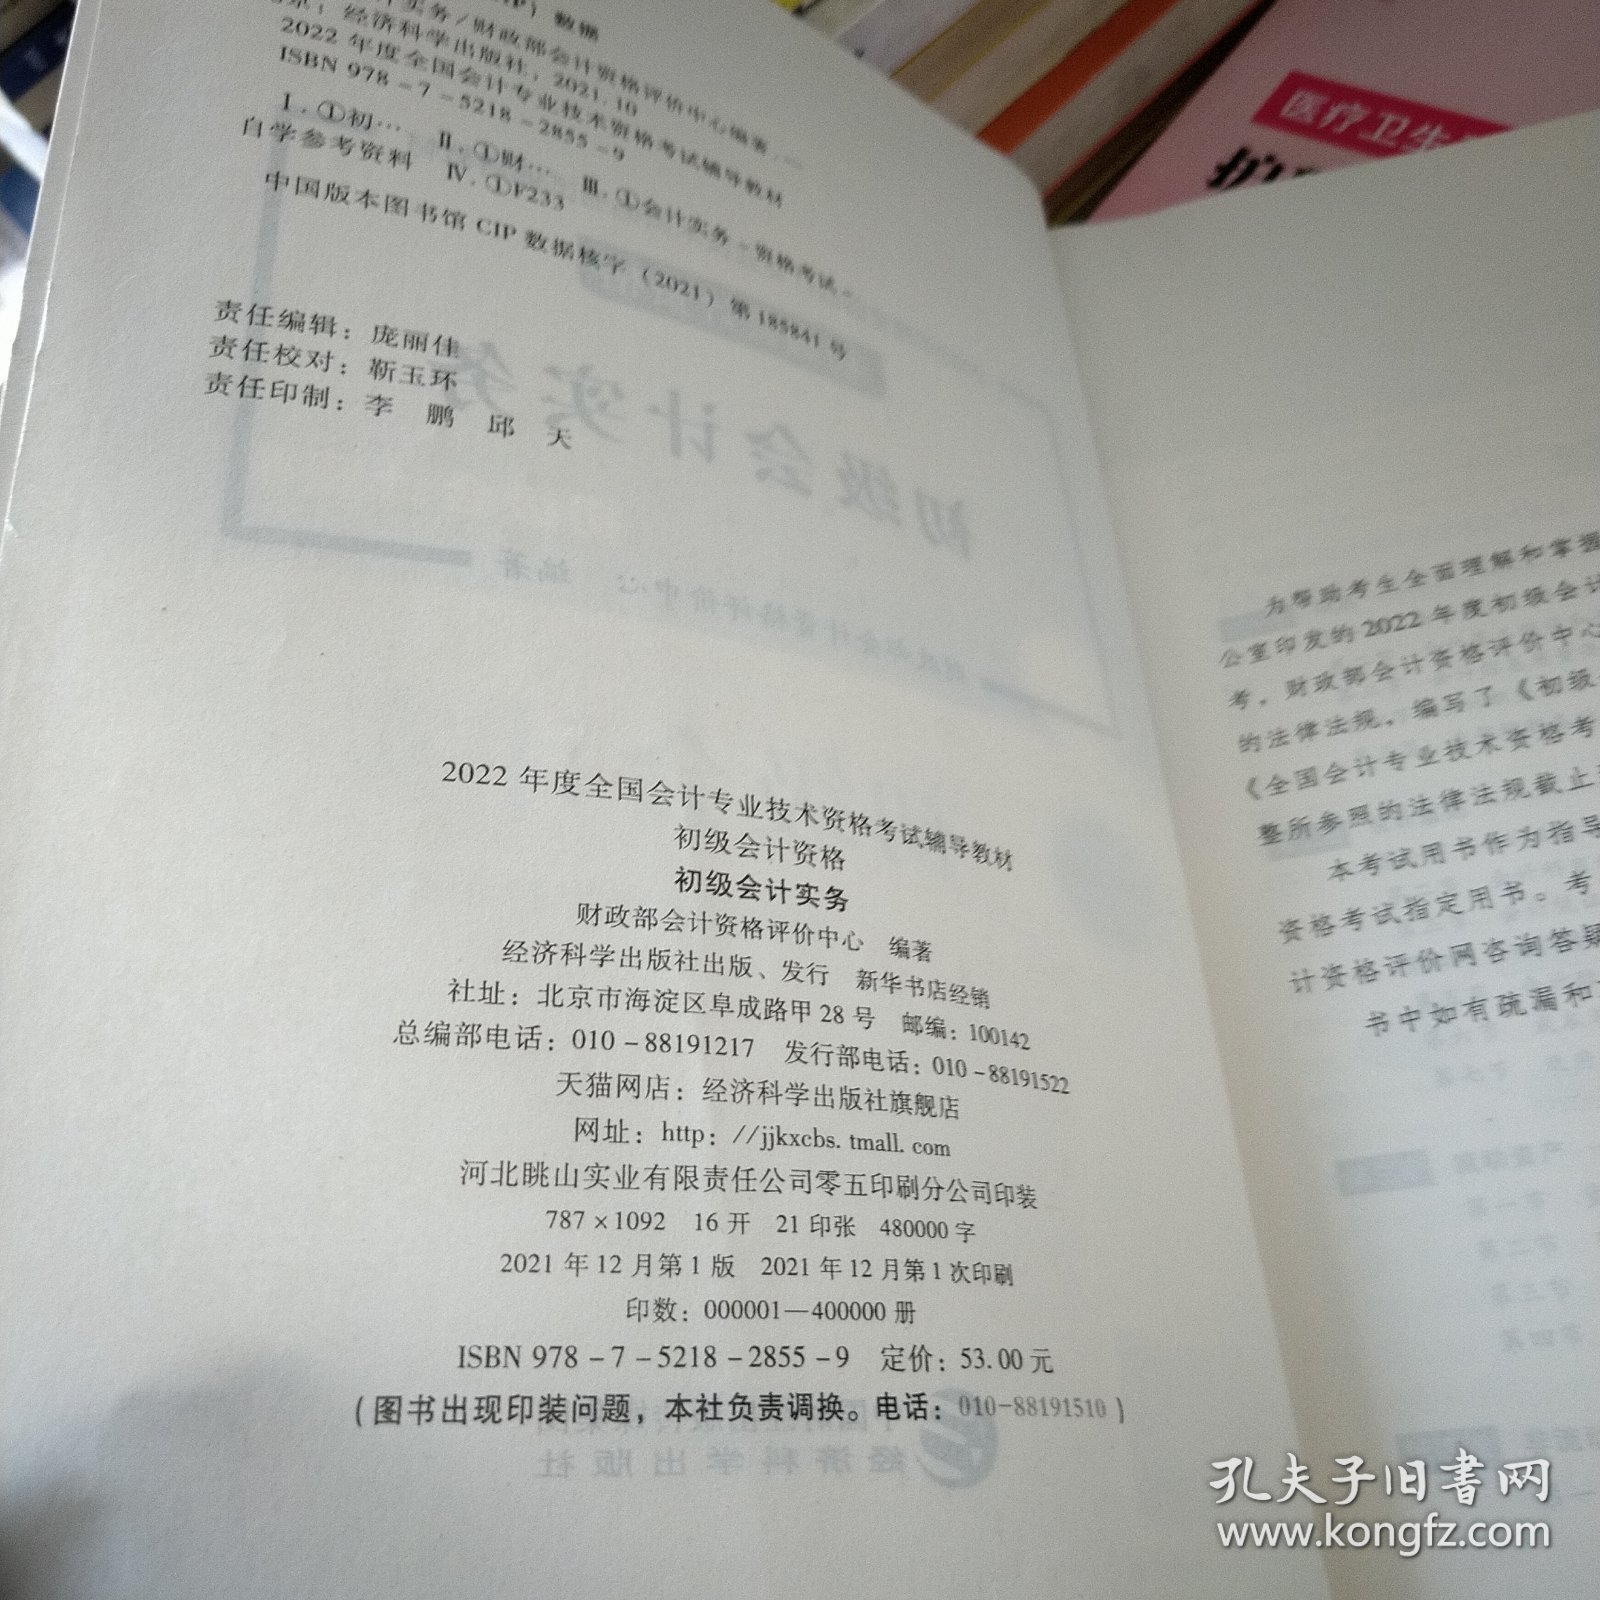 CIP）数据
计实务/财政部会计资格评价中心编著．—
京：经济科学出版社，2021.10
2022年度全国会计专业技术资格考试辅导教材
ISBN 978－7－5218－2855－9
Ⅰ.①初… Ⅱ.①财… Ⅲ.①会计实务－资格考试－
自学参考资料 Ⅳ.①F233
中国版本图书馆 CIP 数据核字（2021）第 185841 号
责任编辑：庞丽佳
责任校对：靳玉环
责任印制：李 鹏 邱 天
2022 年度全国会计专业技术资格考试辅导教材
初级会计资格
初级会计实务
财政部会计资格评价中心 编著
经济科学出版社出版、发行 新华书店经销
社址：北京市海淀区阜成路甲 28 号 邮编：100142
总编部电话：010－88191217 发行部电话：010－88191522
天猫网店：经济科学出版社旗舰店
网址：http：//jjkxcbs. tmall. com
河北眺山实业有限责任公司零五印刷分公司印装
787×1092 16 开 21 印张 480000 字
2021 年 12 月第 1 版 2021 年 12 月第 1 次印刷
印数：000001—400000 册
ISBN 978－7－5218－2855－9 定价：53.00 元
（图书出现印装问题，本社负责调换。电话：010-88191510）
为帮助考生全面理解和掌握
公室印发的 2022 年度初级会计
考，财政部会计资格评价中心
的法律法规，编写了《初级
《全国会计专业技术资格考
整所参照的法律法规截止
本考试用书作为指导
资格考试指定用书。考
计资格评价网咨询答疑
书中如有疏漏和
医疗卫生
护
孔夫子旧书网
www.kongfz.com